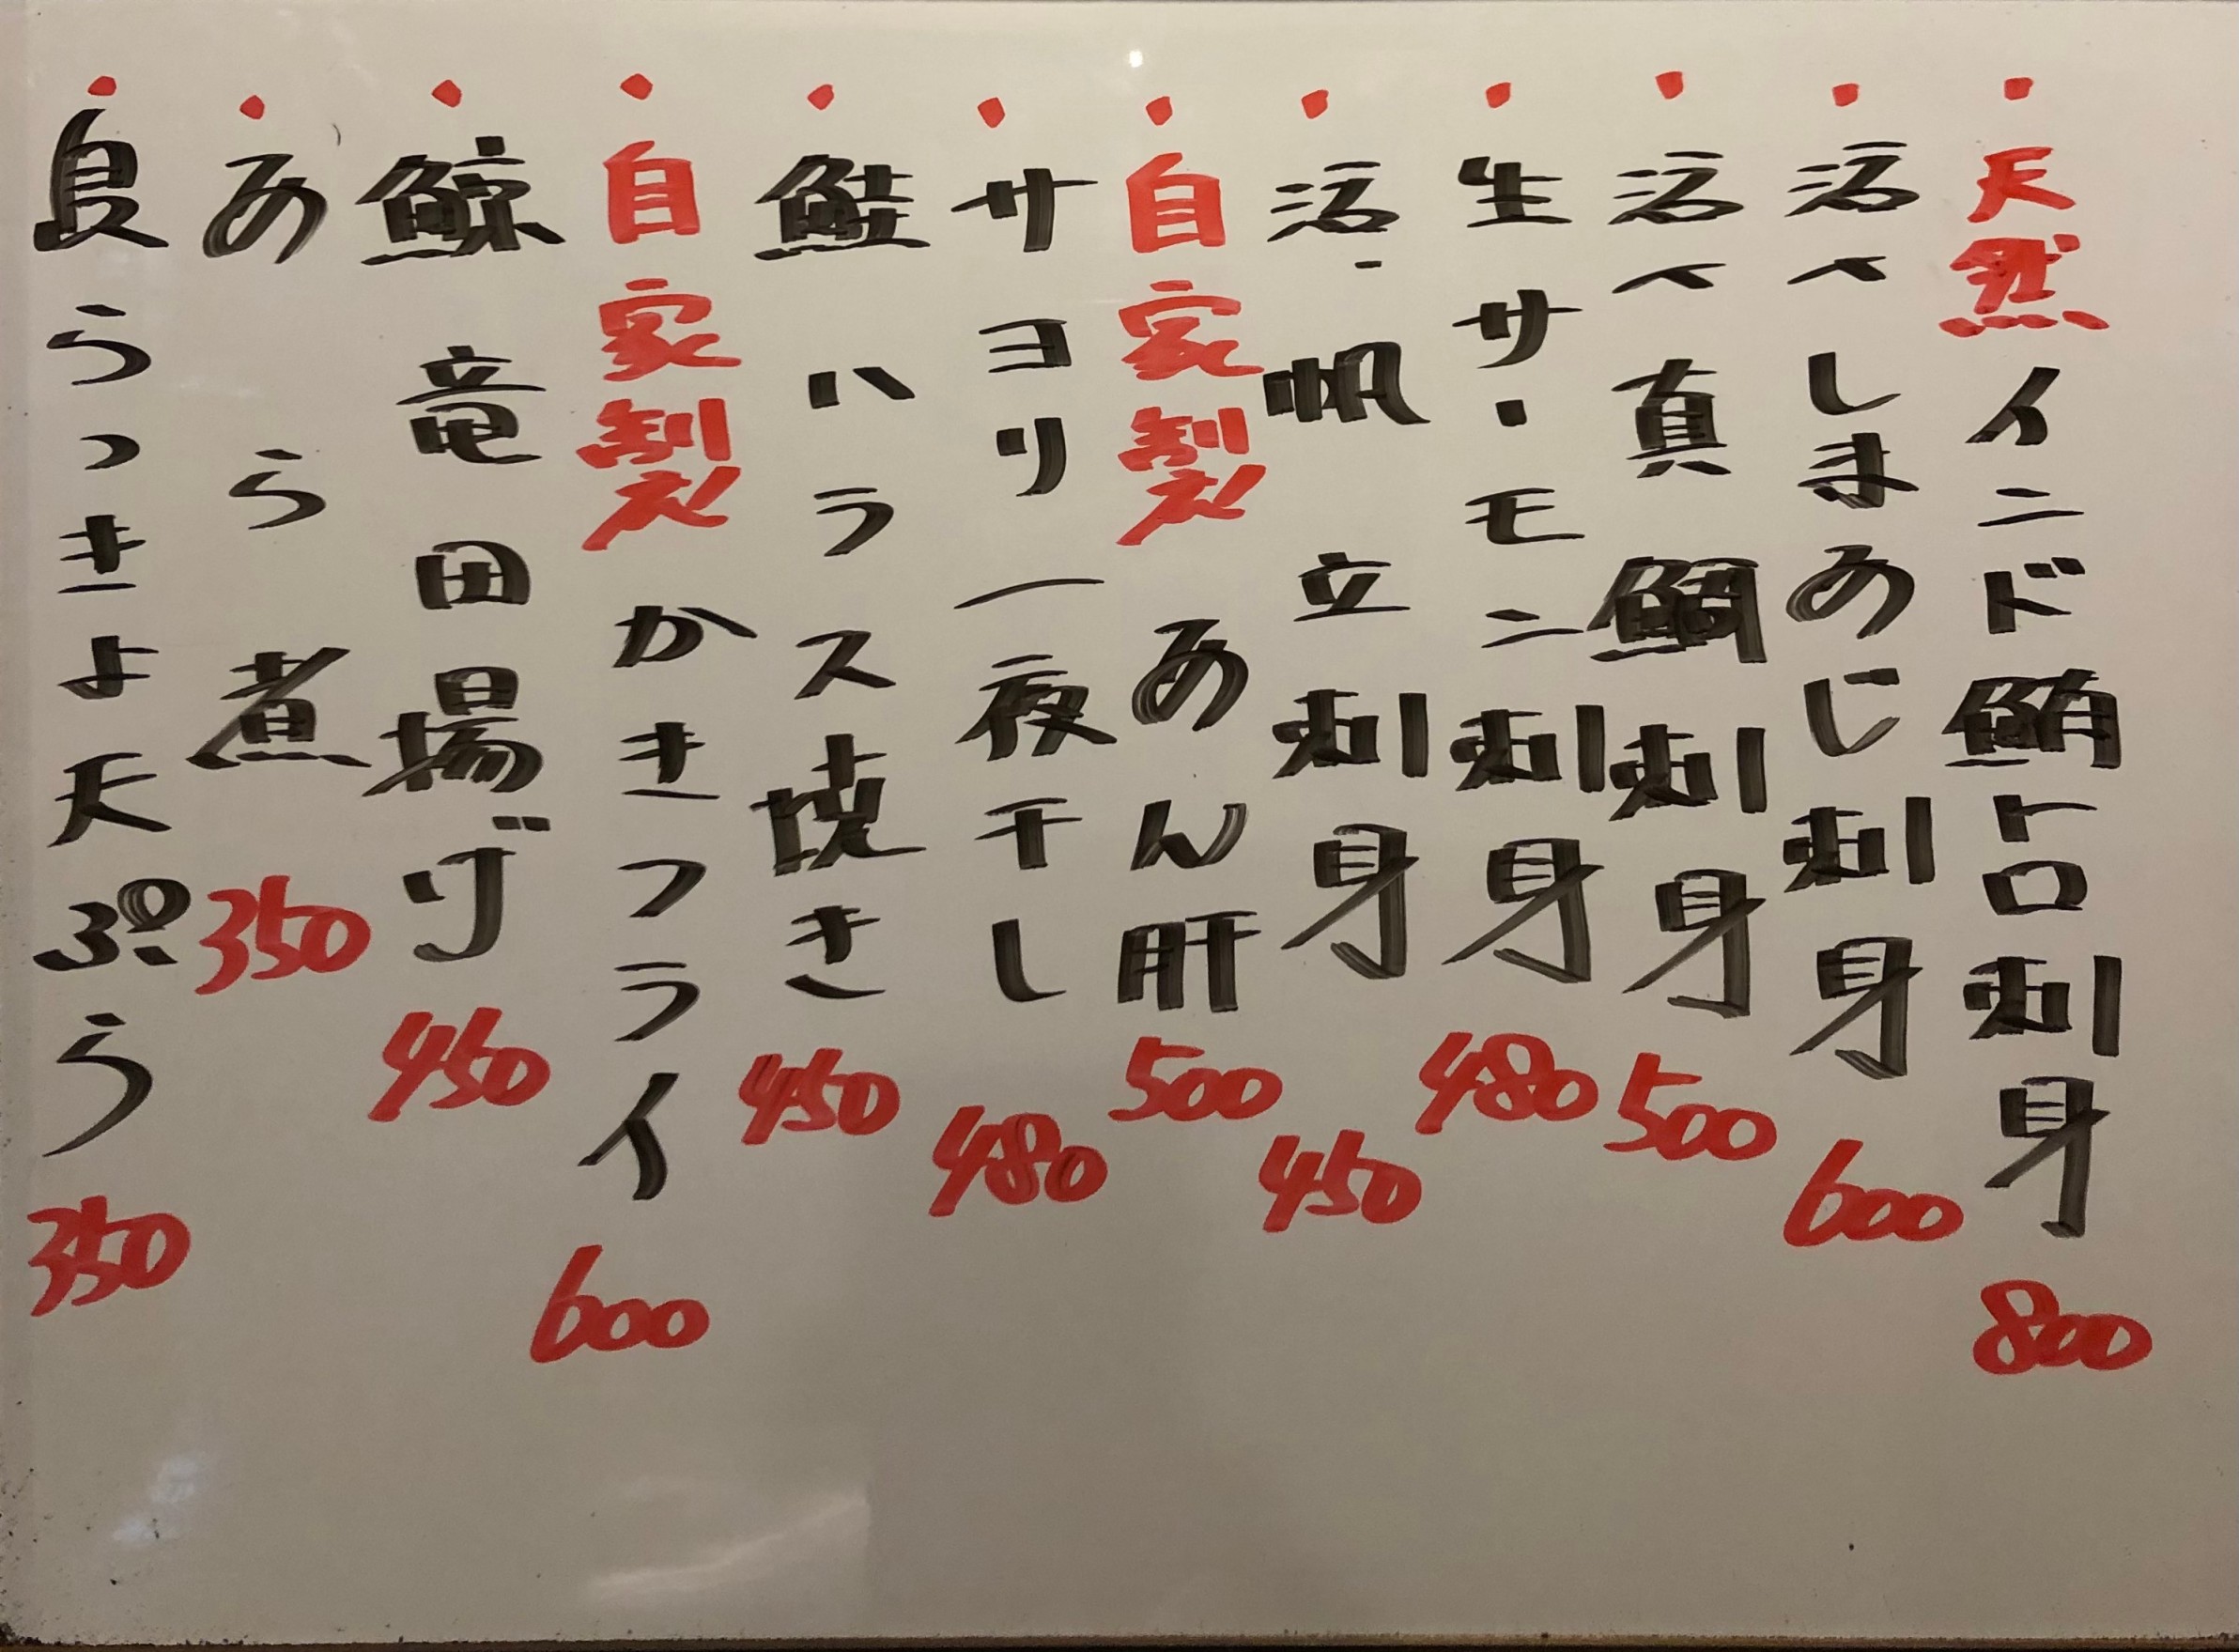 ・天然インド鮪トロ刺身 800
・活〆しまあじ刺身 600
・活〆真鯛刺身 500
・生サーモン刺身 480
・活帆立刺身 450
・自家製あん肝 500
・サヨリ一夜干し 480
・鮭ハラス焼き 450
・自家製かきフライ 600
・鯨竜田揚げ 450
・あら煮 350
・島らっきょ天ぷら 350